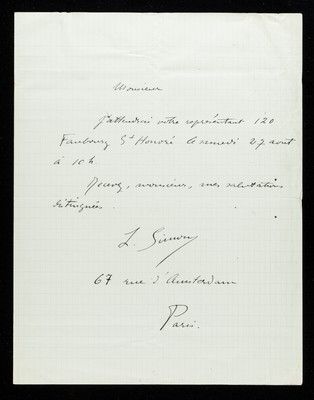 Monsieur
J'attendrai votre représentant 120
Faubourg St Honoré le samedi 27 août
à 10 h
Recevez, monsieur, mes salutations
distinguées.
L. Simon
67 rue d'Amsterdam
Paris.